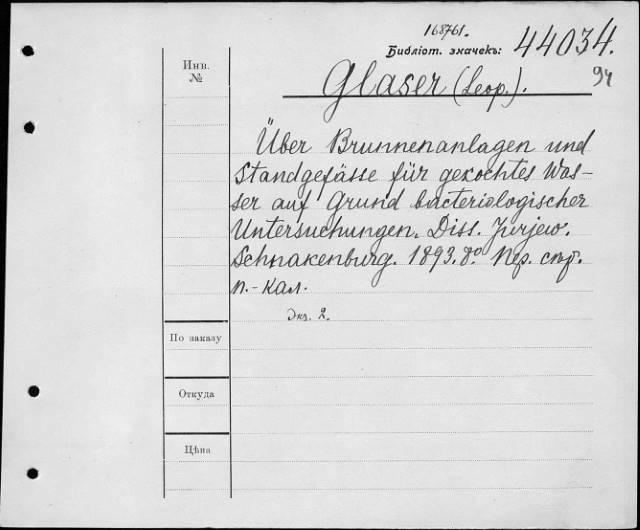 168761.
Библіот. значекъ: 44034.
94
Инв.
№
Glaser (Leop.).
Über Brunnenanlagen und
Standgefässe für gekochtes Was-
ser auf Grund bacteriologischer
Untersuchungen. Diss. Jurjew.
Schnakenburg. 1893. 8º.
п.-кал.
Экз. 2.
По заказу
Откуда
Цѣна